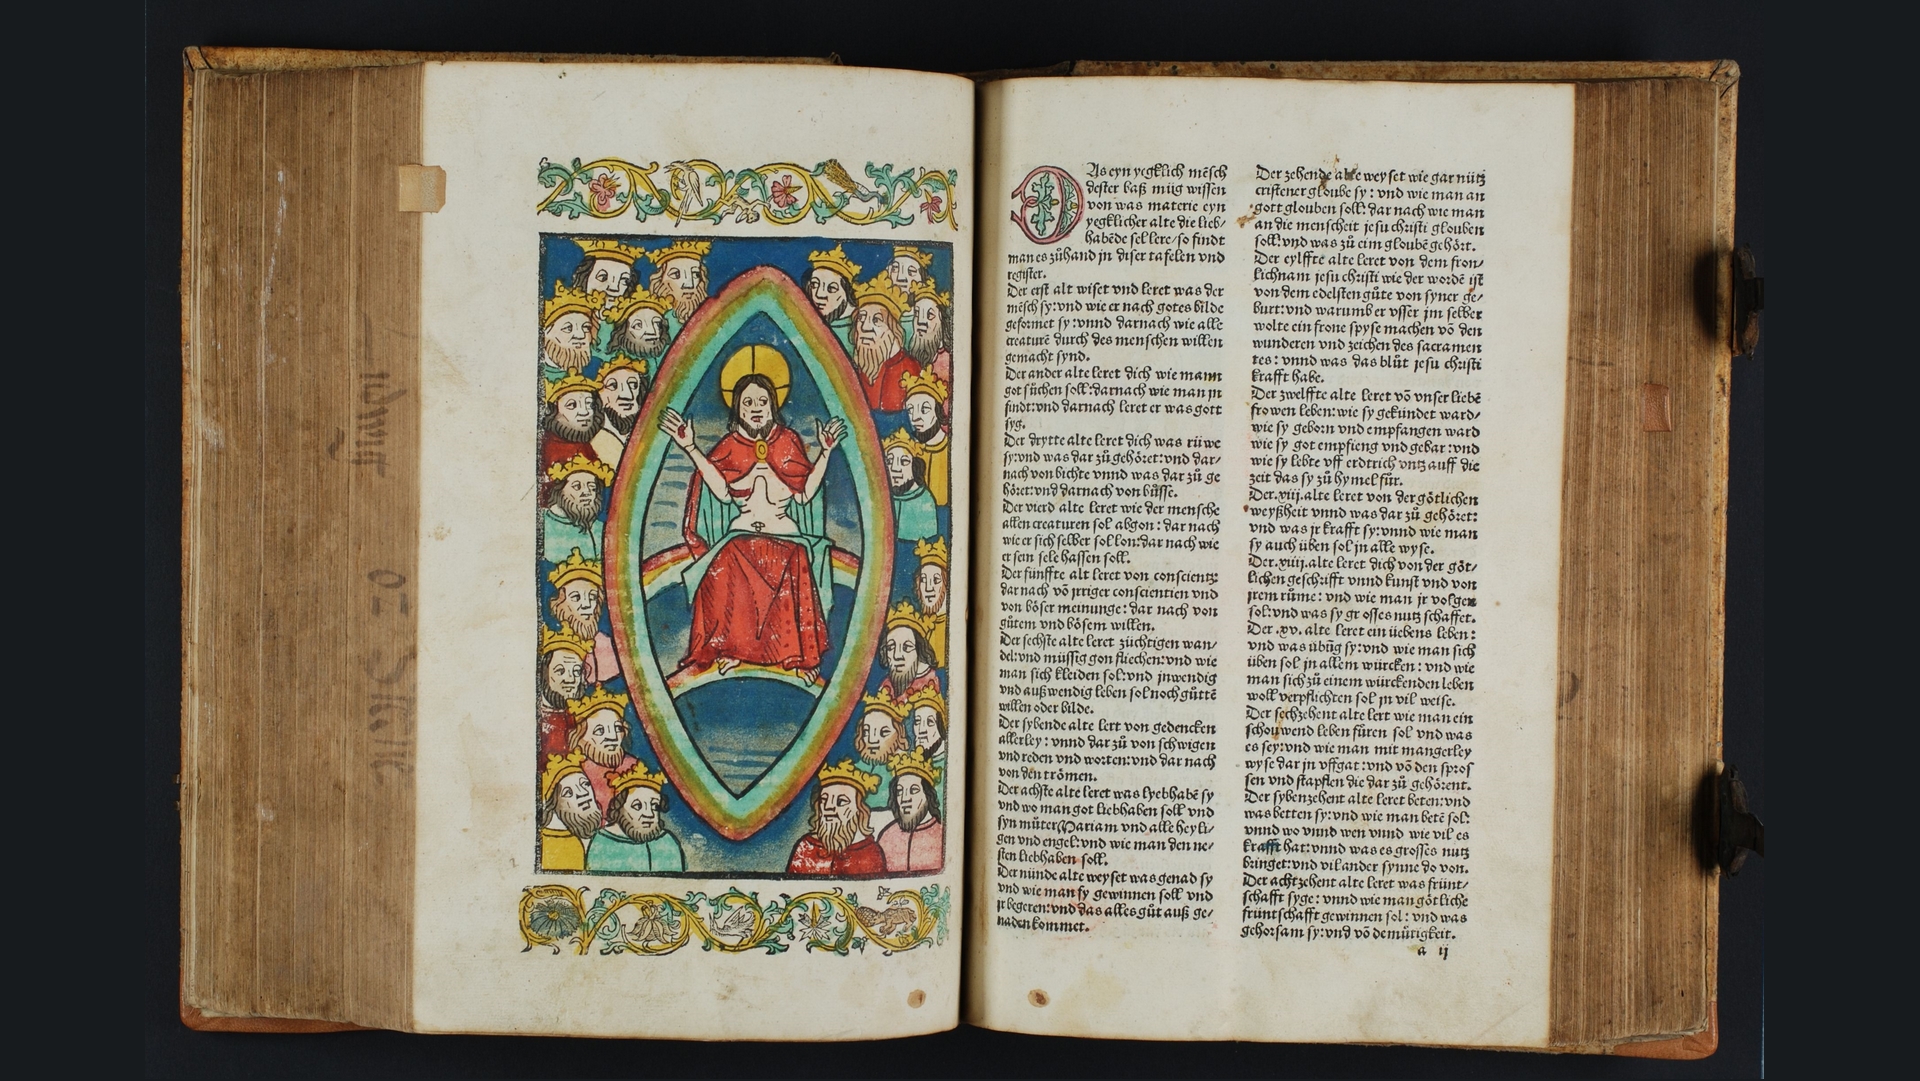 DAs eyn yegklich mēsch
dester baß müg wissen
von was materie eyn
yegklicher alte die lieb⸗
habēde sel lere/so findt
man es zůhand jn diser tafelen vnd
register.
Der erst alt wiset vnd leret was der
mēsch sy:vnd wie er nach gotes bilde
geformet sy:vnnd darnach wie alle
creaturē durch des menschen willen
gemacht synd.
Der ander alte leret dich wie mann
got sůchen soll:darnach wie man jn
findt:vnd darnach leret er was gott
syg.
Der drytte alte leret dich was rüwe
sy:vnd was dar zů gehöret:vnd dar⸗
nach von bichte vnnd was dar zů ge
höret:vnd darnach von bůsse.
Der vierd alte leret wie der mensche
allen creaturen sol abgon: dar nach
wie er sich selber sol lon:dar nach wie
er sein sele hassen soll.
Der fünffte alt leret von conscientz:
dar nach vō jrriger conscientien vnd
von böser meinunge: dar nach von
gůtem vnd bösem willen.
Der sechste alte leret züchtigen wan⸗
del:vnd müssig gon fliechen:vnd wie
man sich kleiden sol:vnd jnwendig
vnd außwendig leben sol noch gůttē
willen oder bilde.
Der sybende alte lert von gedencken
allerley: vnnd dar zů von schwigen
vnd reden vnd worten:vnd dar nach
von den trömen.
Der achste alte leret was lyebhabē sy
vnd wo man got liebhaben soll vnd
syn můter Mariam vnd alle heyli⸗
gen vnd engel:vnd wie man den ne⸗
sten liebhaben soll.
Der nünde alte weyset was genad sy
vnd wie man sy gewinnen soll vnd
jr begeren:vnd das alles gůt auß ge⸗
naden kommet.
Der zehende alte weyset wie gar nütz
cristener gloube sy: vnd wie man an
gott glouben soll: dar nach wie man
an die menscheit jesu christi glouben
soll:vnd was zů eim gloubē gehört.
Der eylffte alte leret von dem fron⸗
lichnam jesu christi wie der wordē ist
von dem edelsten gůte von syner ge⸗
burt:vnd warumb er vsser jm selber
wolte ein frone spyse machen vō den
wunderen vnd zeichen des sacramen
tes: vnnd was das blůt jesu christi
krafft habe.
Der zwelffte alte leret vō vnser liebē
frowen leben:wie sy gekündet ward⸗
wie sy geborn vnd empfangen ward
wie sy got empfieng vnd gebar: vnd
wie sy lebte vff erdtrich vntz auff die
zeit das sy zů hymel fůr.
Der.xiij.alte leret von der götlichen
weyßheit vnnd was dar zů gehöret:
vnd was jr krafft sy:vnnd wie man
sy auch üben sol jn alle wyse.
Der.xiiij.alte leret dich von der göt⸗
lichen geschrifft vnnd kunst vnd von
jrem růme: vnd wie man jr volgen
sol:vnd was sy grosses nutz schaffet.
Der .xv. alte leret ein üebens leben:
vnd was übūg sy:vnd wie man sich
üben sol jn allem würcken: vnd wie
man sich zů einem würckenden leben
woll verpflichten sol jn vil weise.
Der sechzehent alte lert wie man ein
schouwend leben füren sol vnd was
es sey:vnd wie man mit mangerley
wyse dar jn vffgat:vnd vō den spros
sen vnd stapflen die dar zů gehörent.
Der sybenzehent alte leret beten:vnd
was betten sy:vnd wie man betē sol:
vnnd wo vnnd wen vnnd wie vil es
krafft hat:vnnd was es grosses nutz
bringet:vnd vil ander synne do von.
Der achtzehent alte leret was frünt⸗
schafft syge: vnnd wie man götliche
früntschafft gewinnen sol: vnd was
gehorsam sy:vnd vō demůtigkeit.
a ij